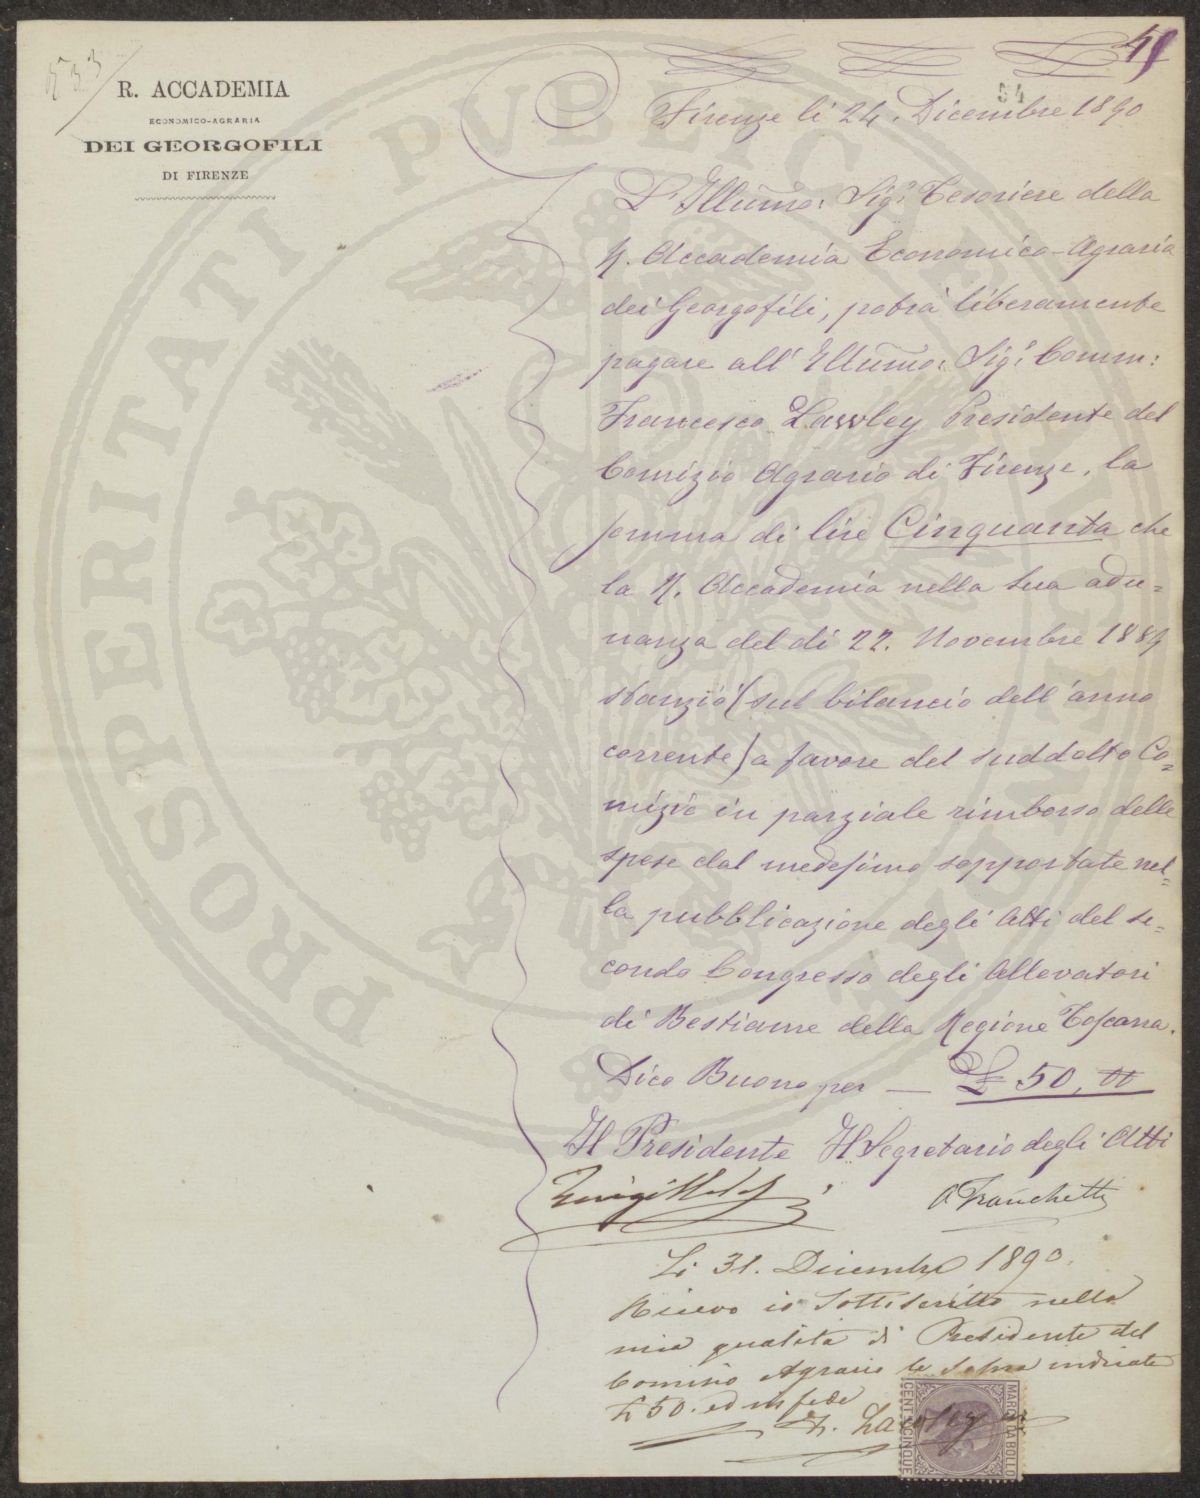 533
R. ACCADEMIA
ECONOMICO-AGRARIA
DEI GEORGOFILI
DI FIRENZE
54
Firenze li 24. Dicembre 1890
L'Illumo: Sigr Tesoriere della
R. Accademia Economico-Agraria
dei Georgofili, potrà liberamente
pagare all'Illumo: Sigr Comm:
Francesco Lawley Presidente del
Comizio Agrario di Firenze, la
somma di lire Cinquanta che
la R. Accademia nella sua adu=
nanza del dì 22. Novembre 1889
stanziò (sul bilancio dell'anno
corrente) a favore del suddetto Co=
mizio in parziale rimborso delle
spese dal medesimo sopportate nel=
la pubblicazione degli Atti del se=
condo Congresso degli Allevatori
di Bestiame della Regione Toscana.
Dico Buono per — £ 50, 00
Il Presidente Il Segretario degli Atti
Luigi A. Franchetti
Li 31. Dicembre 1890.
Ricevo io Sottoscritto nella
mia qualità di Presidente del
Comizio Agrario le Sopra indicate
£ 50. ed in fede
F. Lawley
MARCA DA BOLLO
CENT. CINQUE
PROSPERITATI PUBLICAE AUGENDAE